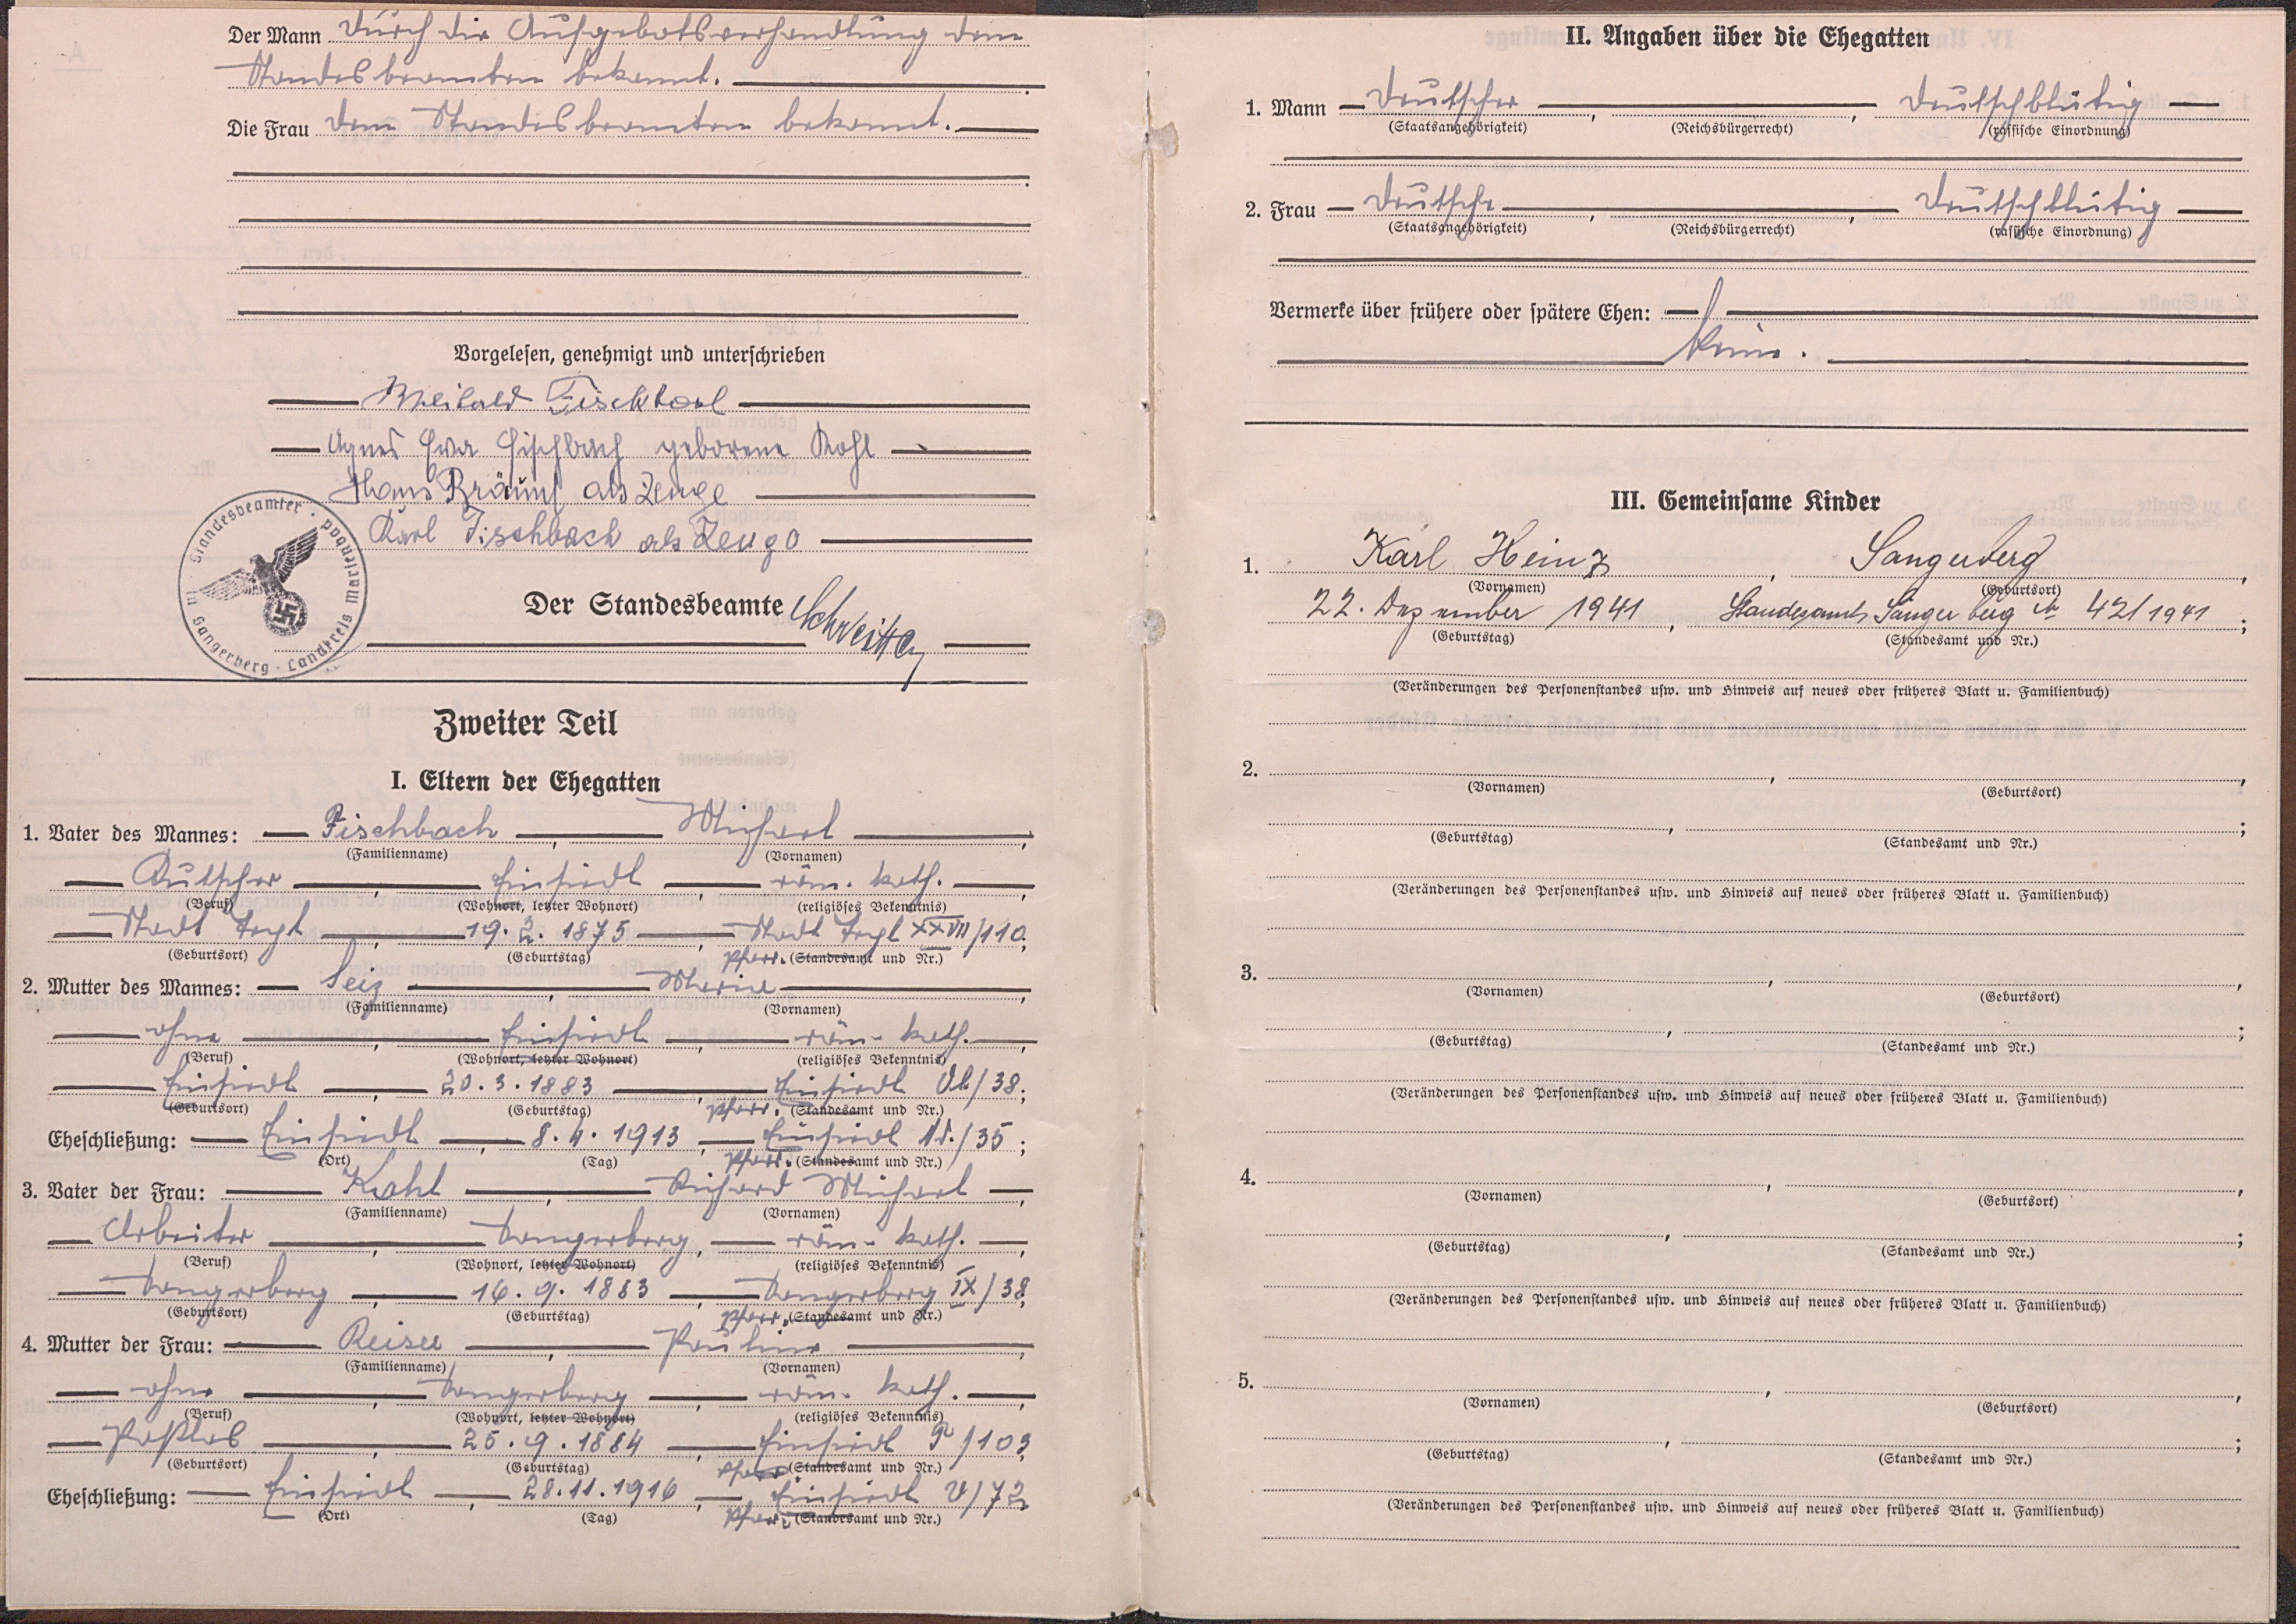 Der Mann durch die Aufgebotsverhandlung dem
Standesbeamten bekannt.
Die Frau dem Standesbeamten bekannt.
Vorgelesen, genehmigt und unterschrieben
Agnes Eva Fischbach geborene Kohl
Hans Bräunl als Zeuge
Karl Fischbach als Zeuge
Standesbeamter in Sangerberg · Landkreis Marienbad
Der Standesbeamte
Zweiter Teil
I. Eltern der Ehegatten
1. Vater des Mannes: Fischbach, Michael,
(Familienname) (Vornamen)
Kutscher, Einsiedl, röm. kath.,
(Beruf) (Wohnort, letzter Wohnort) (religiöses Bekenntnis)
Stadt Tepl, 19. 2. 1875, Stadt Tepl XXVII/110;
(Geburtsort) (Geburtstag) Pfarr. (Standesamt und Nr.)
2. Mutter des Mannes: Seiz, Marie,
(Familienname) (Vornamen)
ohne, Einsiedl, röm. kath.,
(Beruf) (Wohnort, letzter Wohnort) (religiöses Bekenntnis)
Einsiedl, 20. 3. 1883, Einsiedl /38;
(Geburtsort) (Geburtstag) Pfarr. (Standesamt und Nr.)
Eheschließung: Einsiedl, 8. 4. 1913, Einsiedl /35;
(Ort) (Tag) Pfarr. (Standesamt und Nr.)
3. Vater der Frau: Kohl, Richard Michael,
(Familienname) (Vornamen)
Arbeiter, Sangerberg, röm. kath.,
(Beruf) (Wohnort, letzter Wohnort) (religiöses Bekenntnis)
Sangerberg, 16. 9. 1883, Sangerberg IX/38;
(Geburtsort) (Geburtstag) Pfarr. (Standesamt und Nr.)
4. Mutter der Frau: Reiser, Pauline,
(Familienname) (Vornamen)
ohne, Sangerberg, röm. kath.,
(Beruf) (Wohnort, letzter Wohnort) (religiöses Bekenntnis)
25. 9. 1884, Einsiedl /103
(Geburtsort) (Geburtstag) Pfarr. (Standesamt und Nr.)
Eheschließung: Einsiedl, 28. 11. 1916, Einsiedl V/72
(Ort) (Tag) Pfarr. (Standesamt und Nr.)
II. Angaben über die Ehegatten
1. Mann Deutscher, , Deutschblütig
(Staatsangehörigkeit) (Reichsbürgerrecht) (rassische Einordnung)
2. Frau Deutsche, , Deutschblütig
(Staatsangehörigkeit) (Reichsbürgerrecht) (rassische Einordnung)
Vermerke über frühere oder spätere Ehen:
Keine.
III. Gemeinsame Kinder
1. Karl Heinz, Sangerberg,
(Vornamen) (Geburtsort)
22. Dezember 1941, Standesamt Sangerberg Nr 42/1941;
(Geburtstag) (Standesamt und Nr.)
(Veränderungen des Personenstandes usw. und Hinweis auf neues oder früheres Blatt u. Familienbuch)
2. , ,
(Vornamen) (Geburtsort)
, ;
(Geburtstag) (Standesamt und Nr.)
(Veränderungen des Personenstandes usw. und Hinweis auf neues oder früheres Blatt u. Familienbuch)
3. , ,
(Vornamen) (Geburtsort)
, ;
(Geburtstag) (Standesamt und Nr.)
(Veränderungen des Personenstandes usw. und Hinweis auf neues oder früheres Blatt u. Familienbuch)
4. , ,
(Vornamen) (Geburtsort)
, ;
(Geburtstag) (Standesamt und Nr.)
(Veränderungen des Personenstandes usw. und Hinweis auf neues oder früheres Blatt u. Familienbuch)
5. , ,
(Vornamen) (Geburtsort)
, ;
(Geburtstag) (Standesamt und Nr.)
(Veränderungen des Personenstandes usw. und Hinweis auf neues oder früheres Blatt u. Familienbuch)